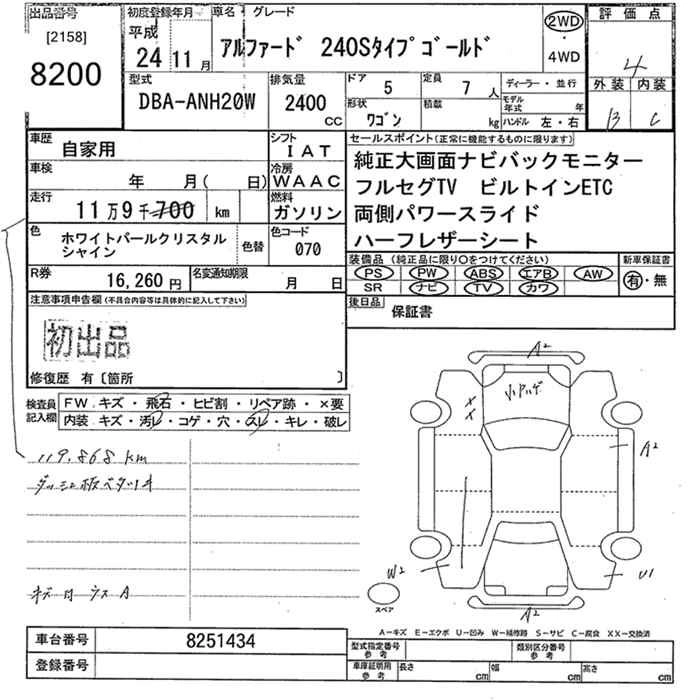 出品番号
[2158]
8200
初度登録年月
平成
24 11 月
車名 グレード
アルファード 240Sタイプゴールド
2WD
・
4WD
評価点
4
外装 内装
B C
型式
DBA-ANH20W
排気量
2400
CC
ドア
5
定員
7 人
形状
ワゴン
積載
kg
ディーラー・並行
モデル年式 年
ハンドル 左・右
車歴
自家用
シフト
IAT
車検
年 月( 日)
冷房
WAAC
走行
11 万 9 千 700 km
燃料
ガソリン
色
ホワイトパールクリスタル
シャイン
色替
色コード
070
R券
16,260 円
名変通知期限
月 日
セールスポイント(正常に機能するものに限ります)
純正大画面ナビバックモニター
フルセグTV ビルトインETC
両側パワースライド
ハーフレザーシート
装備品 (純正品に限り○をつけてください)
PS PW ABS エアB AW
SR ナビ TV カワ
新車保証書
有・無
後日品
保証書
注意事項申告欄(不具合内容等は具体的に記入して下さい)
初出品
修復歴 有〔箇所 〕
検査員
記入欄
FW. キズ・飛石・ヒビ割・リペア跡・×要
内装. キズ・汚レ・コゲ・穴・スレ・キレ・破レ
119,868 km
A2
A2
W2
U1
A2
スペア
A-キズ E-エクボ U-凹み W-補修跡 S-サビ C-腐食 XX-交換済
車台番号 8251434
登録番号
型式指定番号
参考
類別区分番号
参考
車庫証明用
参考
長さ cm 幅 cm 高さ cm